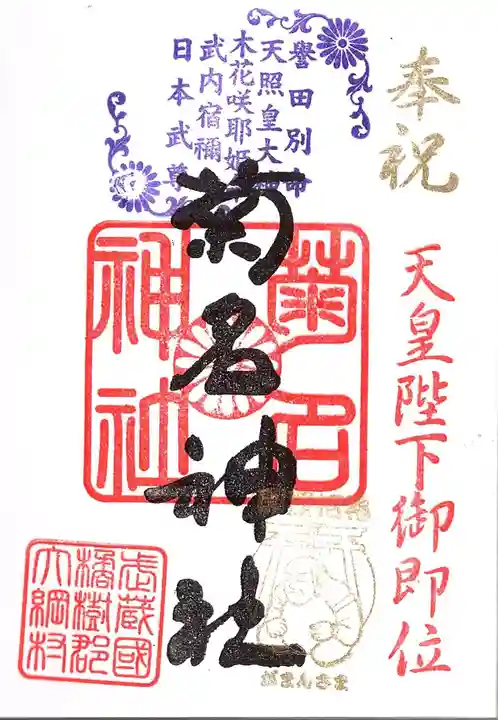 奉祝
天皇陛下御即位
誉田別命
天照皇大神
木花咲耶姫
武内宿禰
日本武尊
菊名神社
菊名
神社
武蔵國
橘樹郡
大綱村
がまんさま